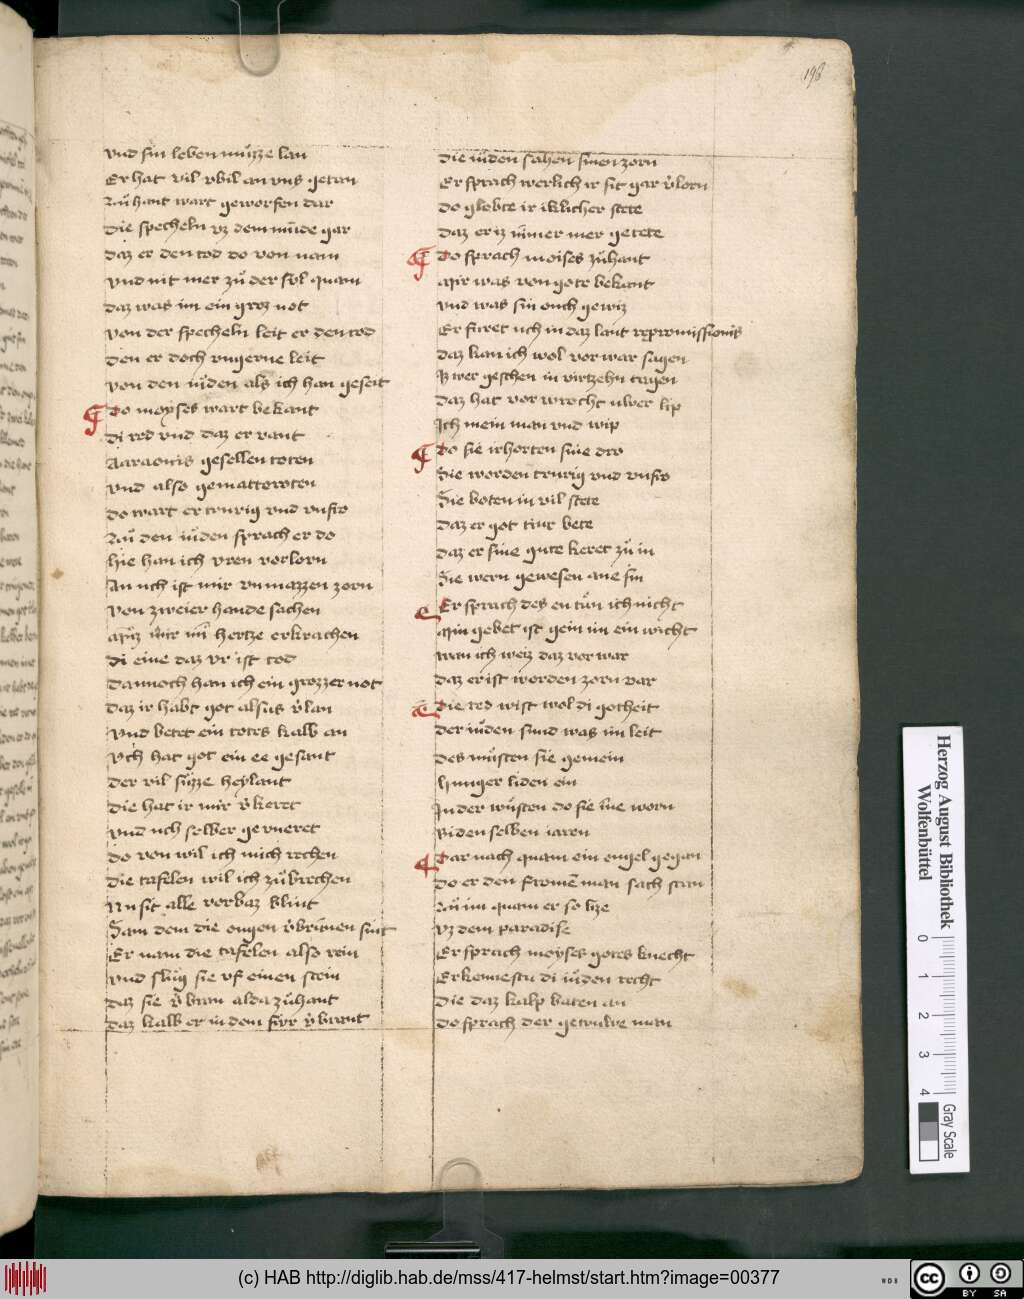 198
vnd sin leben muͦzze lan
Er hat vil vbil an vns getan
Zuͦ hant wart geworfen dar
Die specheln vz dem mu͂de gar
daz er den tod do von nam
vnd nit mer zuͦ der suͤl quam
daz was im ein groz not
von der specheln leit er den tod
den er doch vngerne leit
von den iuͦden als ich han geseit
Do moyses wart bekant
di red vnd daz er vant
Aaraonis gesellen toten
vnd also gemartteroten
do wart er trurig vnd vnfro
Zuͦ den iuͦden sprach er do
hie han ich vren vorlorn
An uch ist mir vnmazzen zorn
von zweier hande sachen
Muͦz mir min hertze erkrachen
di eine daz vr ist tod
dannoch han ich ein grozzer not
daz ir habt got alsus v̓lan
vnd betet ein totes kalb an
vch hat got ein ee gesant
der vil suͤzze heylant
die hat ir mir v̓keret
vnd uch selber gevneret
do von wil ich mich rechen
die tafelen wil ich zuͦbrechen
Nu sit alle vorbaz blint
Sam dem die ougen v̓bru͂nen sint
Er nam die tafelen also rein
vnd sluͤg sie vf einen stein
daz sie v̓bran alda zuͦhant
daz kalb er in dem fuͤr v̓brant
die iuͦden sahen sinen zorn
Er sprach werlich ir sit gar v̓lorn
do globte ir iklicher stete
daz er iz nu͂mer mer getete
Do sprach moises zuͦhant
Mir was von gote bekant
vnd was sin ouch gewiz
Er furet uch in daz lant repromissionis
daz kan ich wol vor war sagen
Iz wer geschen in virtzehn tagen
daz hat vor wrocht uwer lip
Ich mein man vnd wip
Do sie irhorten sine dro
Sie worden trurig vnd vnfro
Sie boten in vil stete
daz er got tiur bete
daz er sine gute keret zuͦ in
Sie wern gewesen ane sin
Er sprach des en tuͦn ich nicht
Min gebet ist gein im ein wicht
wan ich weiz daz vor war
daz er ist worden zorn var
Die red wist wol di gotheit
der iuͦden sund was im leit
des muͦsten sie gemein
hunger liden ein
In der wuͤsten do sie inne worn
Bi den selben iaren
Dar nach quam ein engel gegan
do er den frome͂ man sach stan
Zuͦ im quam er so lize
vz dem paradise
Er sprach moyses gotes knecht
Erkennestu di iuͦden recht
die daz kalp baten an
do sprach der getruwe man
Herzog August Bibliothek
Wolfenbüttel
0 1 2 3 4
Gray Scale
(c) HAB http://diglib.hab.de/mss/417-helmst/start.htm?image=00377
WDB
cc BY SA